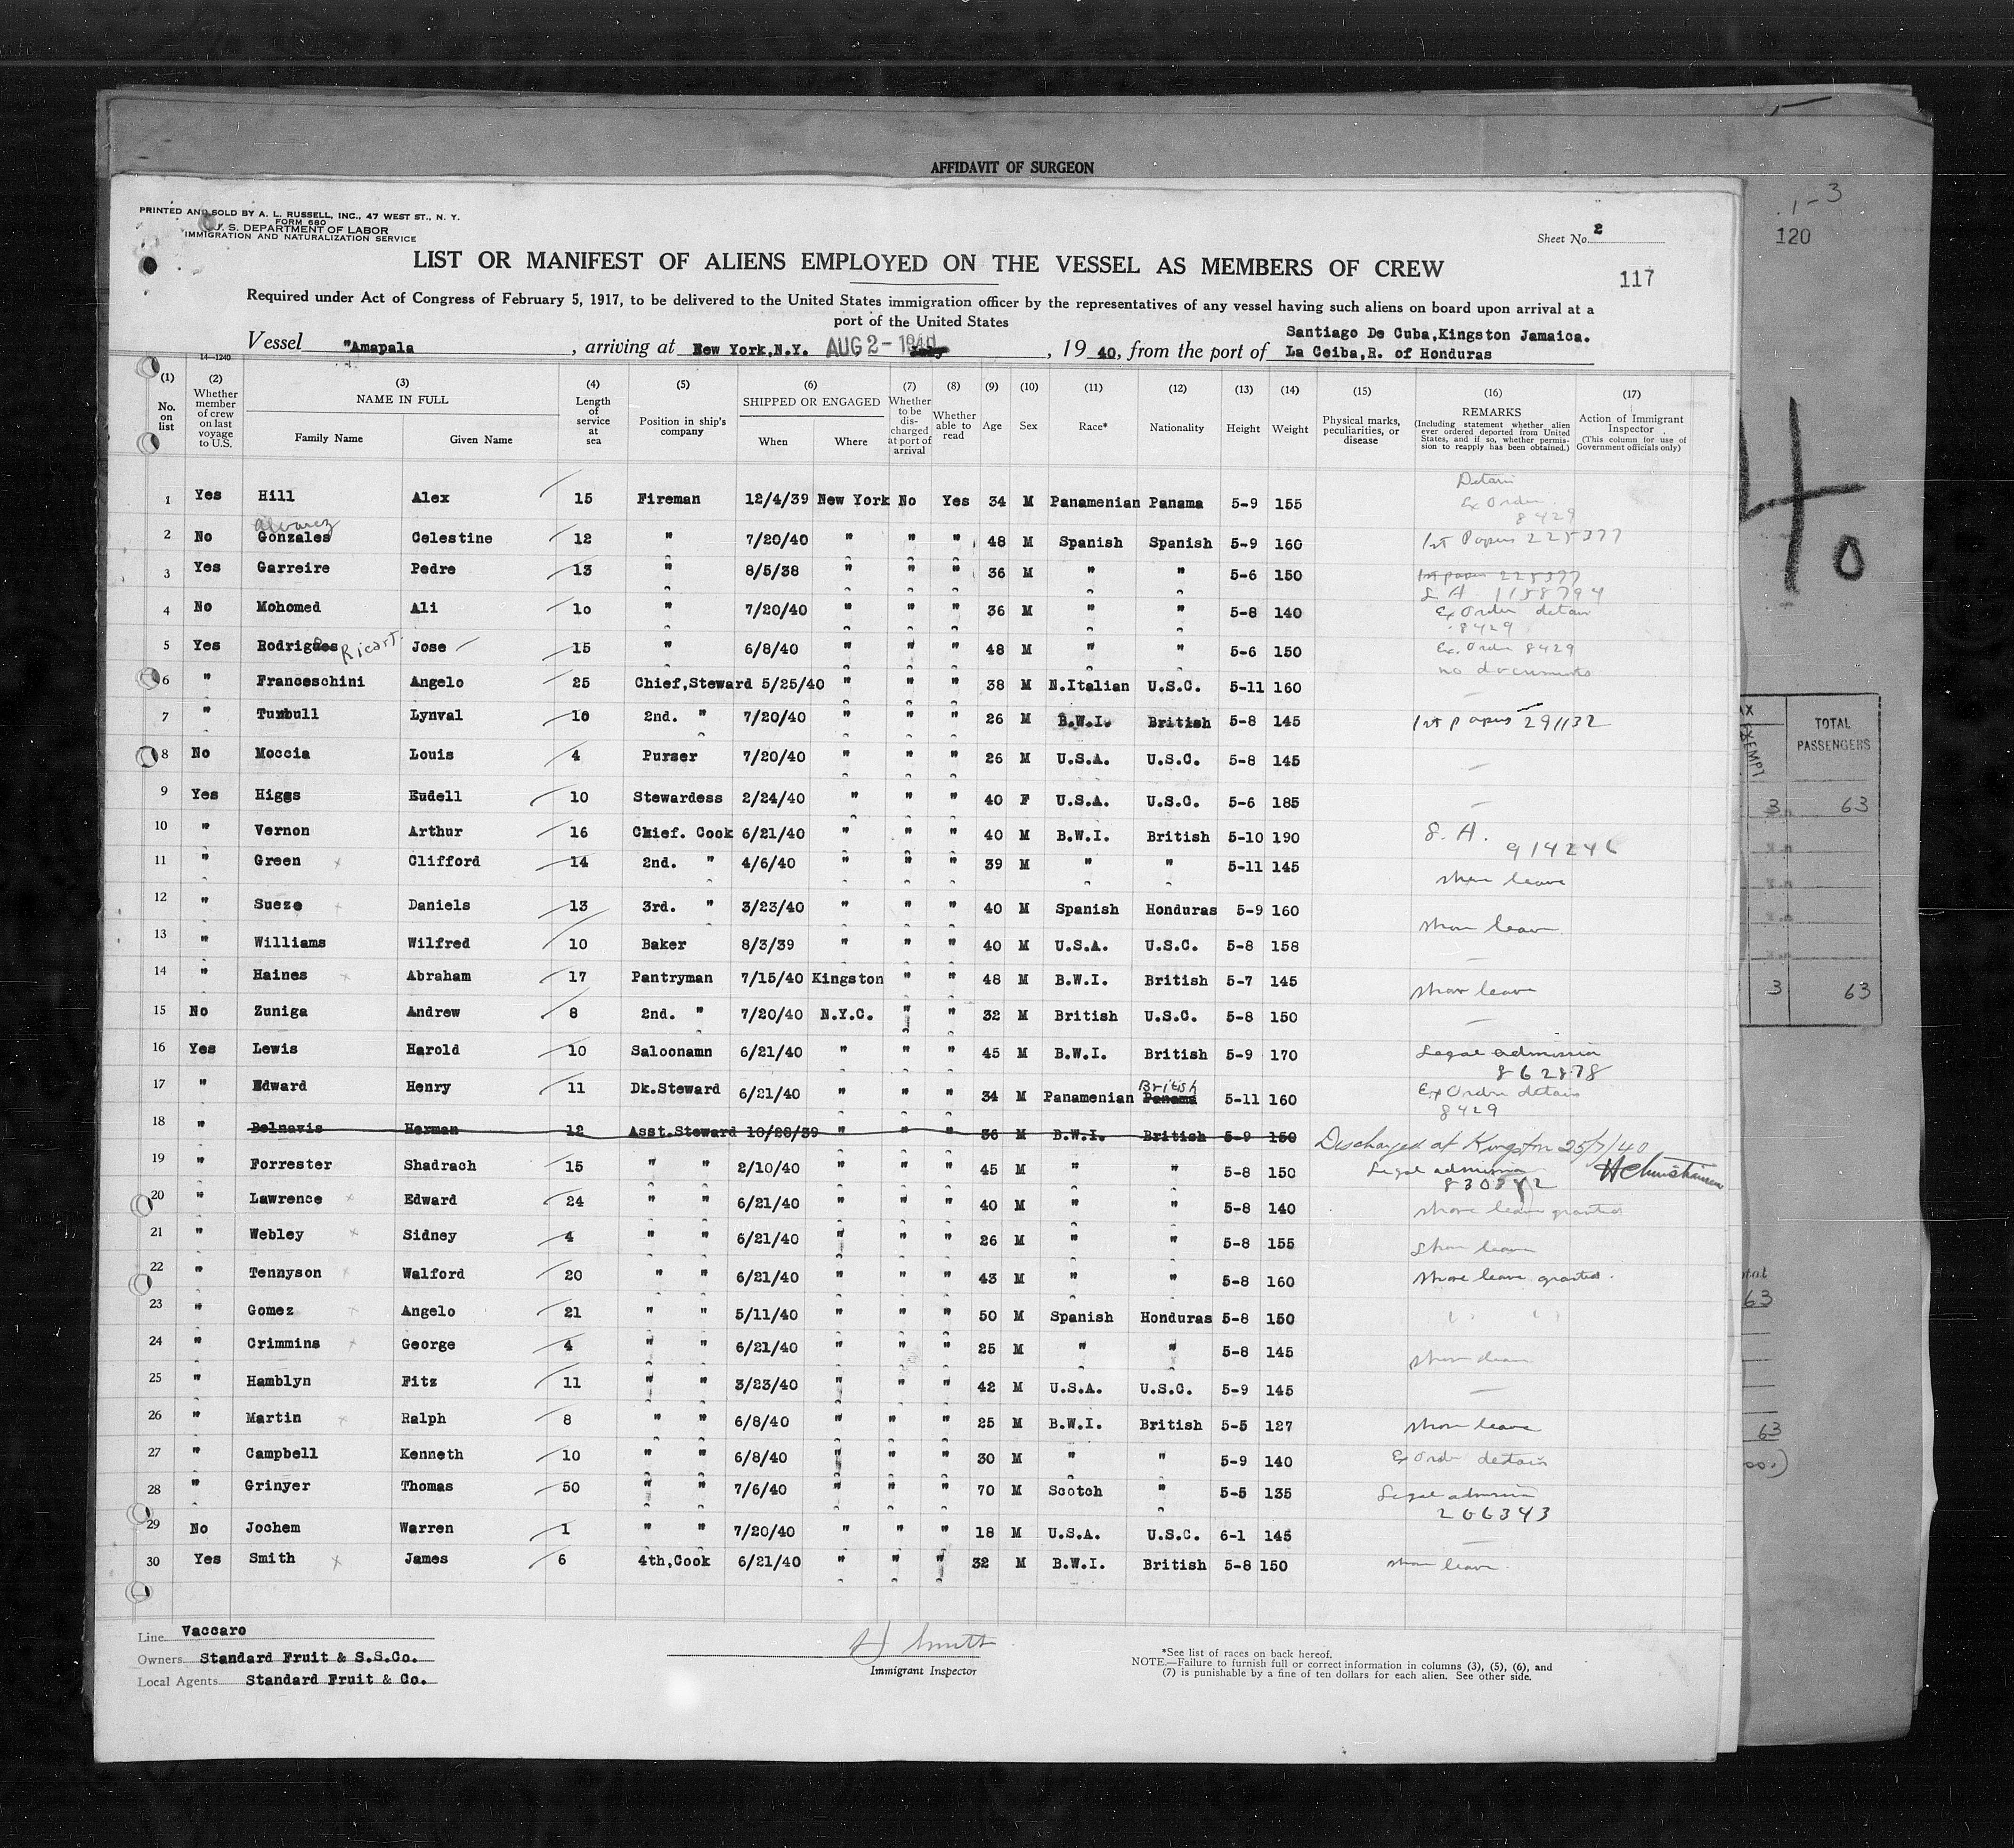 AFFIDAVIT OF SURGEON
PRINTED AND SOLD BY A. L. RUSSELL, INC., 47 WEST ST., N. Y.
FORM 680
U. S. DEPARTMENT OF LABOR
IMMIGRATION AND NATURALIZATION SERVICE
Sheet No. 2
1-3
120
LIST OR MANIFEST OF ALIENS EMPLOYED ON THE VESSEL AS MEMBERS OF CREW
117
Required under Act of Congress of February 5, 1917, to be delivered to the United States immigration officer by the representatives of any vessel having such aliens on board upon arrival at a
port of the United States
Santiago De Cuba,Kingston Jamaica.
Vessel "Amapala , arriving at New York,N.Y. AUG 2 - 1940 , 19 40, from the port of La Ceiba,R. of Honduras
14-1240
(1) No. on list (2) Whether member of crew on last voyage to U.S. (3) NAME IN FULL Family Name Given Name (4) Length of service at sea (5) Position in ship's company (6) SHIPPED OR ENGAGED When Where (7) Whether to be dis-charged at port of arrival (8) Whether able to read (9) Age (10) Sex (11) Race* (12) Nationality (13) Height (14) Weight (15) Physical marks, peculiarities, or disease (16) REMARKS (Including statement whether alien ever ordered deported from United States, and if so, whether permis-sion to reapply has been obtained.) (17) Action of Immigrant Inspector (This column for use of Government officials only)
1 Yes Hill Alex 15 Fireman 12/4/39 New York No Yes 34 M Panamenian Panama 5-9 155 Detain Ex Order 8429
Alvarez
2 No Gonzales Celestine 12 " 7/20/40 " " " 48 M Spanish Spanish 5-9 160 1st Papers 225377
3 Yes Garreire Pedre 13 " 8/5/38 " " " 36 M " " 5-6 150 1st papers 225377 S A 1158794
4 No Mohomed Ali 10 " 7/20/40 " " " 36 M " " 5-8 140 Ex Order detain 8429
5 Yes Rodrigues Ricart Jose 15 " 6/8/40 " " " 48 M " " 5-6 150 Ex. Order 8429 no documents
6 " Franceschini Angelo 25 Chief,Steward 5/25/40 " " " 38 M N.Italian U.S.C. 5-11 160 —
7 " Turbull Lynval 10 2nd. " 7/20/40 " " " 26 M B.W.I. British 5-8 145 1st papers 291132
8 No Moccia Louis 4 Purser 7/20/40 " " " 26 M U.S.A. U.S.C. 5-8 145 —
9 Yes Higgs Eudell 10 Stewardess 2/24/40 " " " 40 F U.S.A. U.S.C. 5-6 185 —
10 " Vernon Arthur 16 Chief. Cook 6/21/40 " " " 40 M B.W.I. British 5-10 190 S. A. 914246
11 " Green x Clifford 14 2nd. " 4/6/40 " " " 39 M " " 5-11 145 shore leave
12 " Sueze Daniels 13 3rd. " 3/23/40 " " " 40 M Spanish Honduras 5-9 160 shore leave
13 " Williams Wilfred 10 Baker 8/3/39 " " " 40 M U.S.A. U.S.C. 5-8 158 —
14 " Haines x Abraham 17 Pantryman 7/15/40 Kingston " " 48 M B.W.I. British 5-7 145 shore leave
15 No Zuniga Andrew 8 2nd. " 7/20/40 N.Y.C. " " 32 M British U.S.C. 5-8 150 —
16 Yes Lewis Harold 10 Saloonamn 6/21/40 " " " 45 M B.W.I. British 5-9 170 Legal admission 862878
17 " Edward Henry 11 Dk.Steward 6/21/40 " " " 34 M Panamenian Panama British 5-11 160 Ex Order detain 8429
18 " Delnavis Herman 12 Asst.Steward 10/28/39 " " " 36 M B.W.I. British 5-9 150 Discharged at Kingston 25/7/40
19 " Forrester Shadrach 15 " " 2/10/40 " " " 45 M " " 5-8 150 Legal admission
20 " Lawrence x Edward 24 " " 6/21/40 " " " 40 M " " 5-8 140 shore leave granted
21 " Webley x Sidney 4 " " 6/21/40 " " " 26 M " " 5-8 155 shore leave
22 " Tennyson x Walford 20 " " 6/21/40 " " " 43 M " " 5-8 160 shore leave granted.
23 " Gomez x Angelo 21 " " 5/11/40 " " " 50 M Spanish Honduras 5-8 150 " "
24 " Crimmins x George 4 " " 6/21/40 " " " 25 M " " 5-8 145 shore leave
25 " Hamblyn Fitz 11 " " 3/23/40 " " " 42 M U.S.A. U.S.C. 5-9 145 —
26 " Martin x Ralph 8 " " 6/8/40 " " " 25 M B.W.I. British 5-5 127 shore leave
27 " Campbell Kenneth 10 " " 6/8/40 " " " 30 M " " 5-9 140 Ex Order detain
28 " Grinyer Thomas 50 " " 7/6/40 " " " 70 M Scotch " 5-5 135 Legal admission 266343
29 No Jochem Warren 1 " " 7/20/40 " " " 18 M U.S.A. U.S.C. 6-1 145 —
30 Yes Smith x James 6 4th,Cook 6/21/40 " " " 32 M B.W.I. British 5-8 150 shore leave
Line Vaccaro
Owners Standard Fruit & S.S.Co.
Local Agents Standard Fruit & Co.
H Smith
Immigrant Inspector
*See list of races on back hereof.
NOTE.—Failure to furnish full or correct information in columns (3), (5), (6), and
(7) is punishable by a fine of ten dollars for each alien. See other side.
EXEMPT
TOTAL PASSENGERS
3 63
3 63
63
63